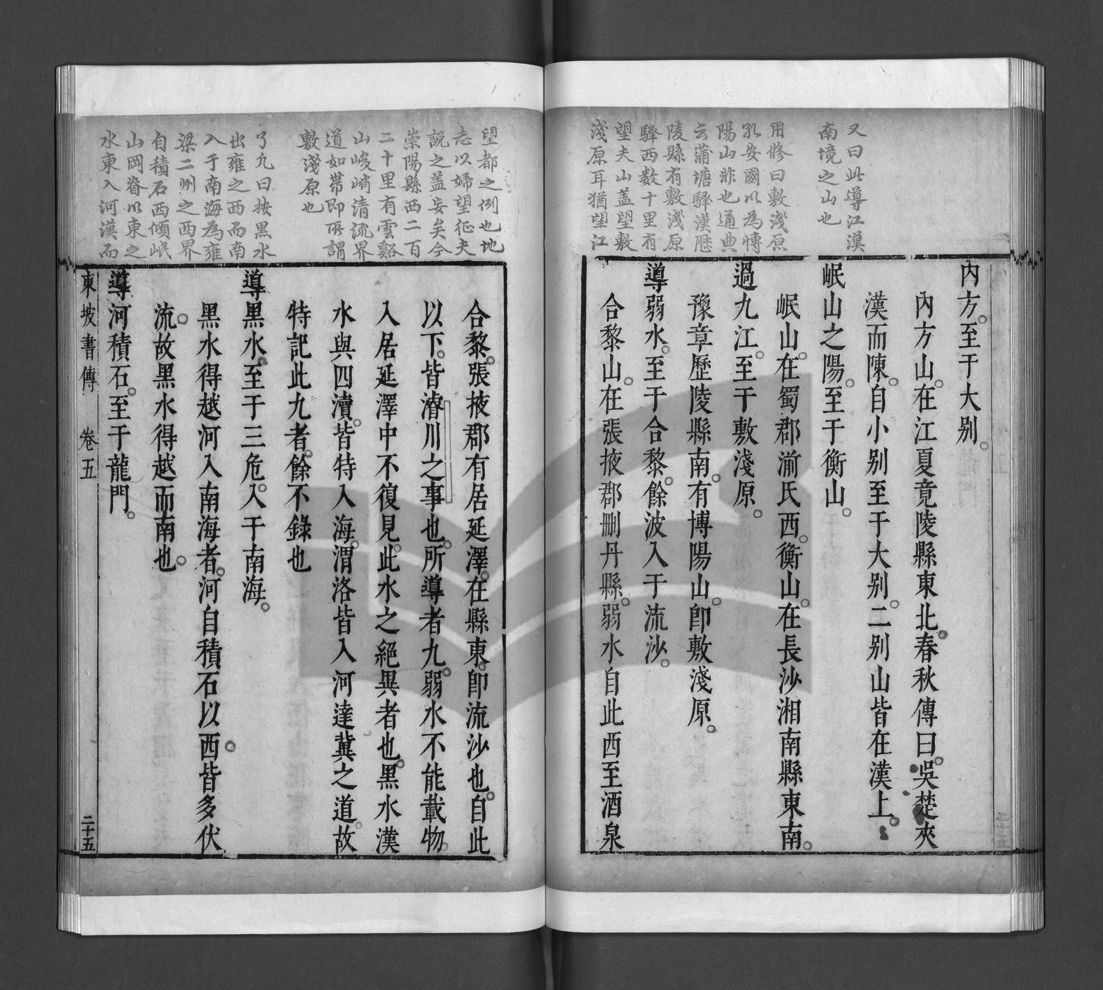 又曰此導江漢
南境之山也
用修曰敷淺原
孔安國以為愽
陽山非也通典
云蒲塘驛漢歷
陵縣有敷淺原
驛西数十里有
望夫山盖望敷
淺原耳猶望江
內方至于大别
內方山在江夏竟陵縣東北春秋傳曰吳楚夾
漢而陳自小别至于大别二别山皆在漢上
岷山之陽至于衡山
岷山在蜀郡湔氏西衡山在長沙湘南縣東南
過九江至于敷淺原
豫章歷陵縣南有博陽山卽敷淺原
導弱水至于合黎餘波入于流沙
合黎山在張掖郡刪丹縣弱水自此西至酒泉
望都之例也地
志以婦望征夫
說之盖妄矣今
崇陽縣西二百
二十里有雲谿
山峻崎清流界
道如帶即所謂
敷淺原也
了凡曰按黒水
出雍之西而南
入于南海為雍
梁二州之西界
自積石西傾岷
山岡脊以東之
水東入河漢而
合黎張掖郡有居延澤在縣東卽流沙也自此
以下皆濬川之事也所導者九弱水不能載物
入居延澤中不復見此水之絕異者也黑水漢
水與四瀆皆特入海渭洛皆入河達冀之道故
特記此九者餘不錄也
導黑水至于三危入于南海
黑水得越河入南海者河自積石以西皆多伏
流故黑水得越而南也
導河積石至于龍門
東坡書傳 卷五 二十五